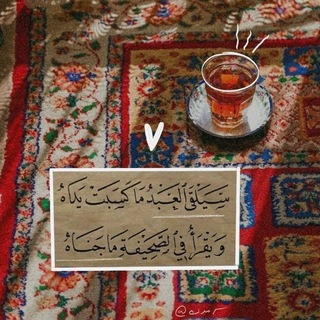 سَيَلْقَى الْعَبْدُ مَا كَسَبَتْ يَدَاهُ
وَيَقْرَأُ فِي الصَّحِيفَةِ مَا جَنَاهُ